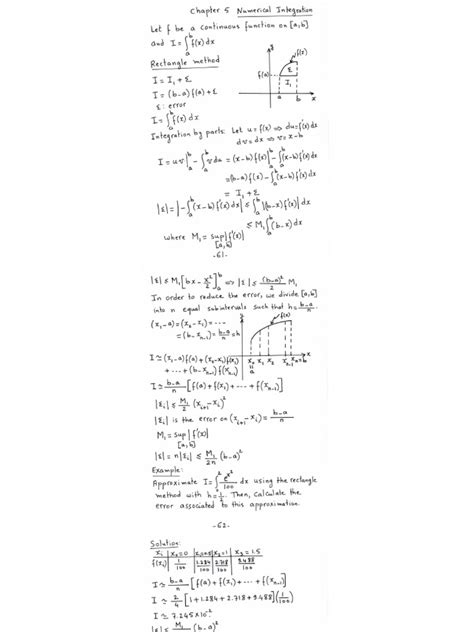 Chapter 5 Numerical Integration
Let f be a continuous function on [a,b]
and I = ∫_a^b f(x) dx
Rectangle method
I = I₁ + ε
I = (b-a) f(a) + ε
ε: error
I = ∫_a^b f(x) dx
f(x)
f(a)
ε
I₁
a b x
Integration by parts: Let u = f(x) ⇒ du = f'(x) dx
dv = dx ⇒ v = x-b
I = uv|_a^b - ∫_a^b v du = (x-b) f(x)|_a^b - ∫_a^b (x-b) f'(x) dx
= (b-a) f(a) - ∫_a^b (x-b) f'(x) dx
= I₁ + ε
|ε| = |-∫_a^b (x-b) f'(x) dx| ≤ ∫_a^b |(b-x) f'(x)| dx
≤ M₁ ∫_a^b (b-x) dx
where M₁ = sup |f'(x)|
[a,b]
-61-
|ε| ≤ M₁ [bx - x²/2]_a^b ⇒ |ε| ≤ (b-a)²/2 M₁
In order to reduce the error, we divide [a,b]
into n equal subintervals such that h = b-a/n
(x₁-a) = (x₂-x₁) = ....
= (b-x_{n-1}) = b-a/n = h
y
f(x)
x₀ x₁ x₂ x_{n-1} x_n=b x
a
I ≃ (x₁-a) f(a) + (x₂-x₁) f(x₁)
+ ... + (b-x_{n-1}) f(x_{n-1})
I ≃ b-a/n [f(a) + f(x₁) + ... + f(x_{n-1})]
|ε_i| ≤ M₁/2 (x_{i+1}-x_i)²
|ε_i| is the error on (x_{i+1}-x_i) = b-a/n
M₁ = sup |f'(x)|
[a,b]
|ε| = n|ε_i| ≤ M₁/2n (b-a)²
Example:
Approximate I = ∫_0^2 e^{x²}/100 dx using the rectangle
method with h = 1/2. Then, calculate the
error associated to this approximation.
-62-
Solution:
x_i | x₀=0 | x₁=0.5 | x₂=1 | x₃=1.5
f(x_i) | 1/100 | 1.284/100 | 2.718/100 | 9.488/100
I ≃ b-a/n [f(a) + f(x₁) + ... + f(x_{n-1})]
I ≃ 2/4 [1 + 1.284 + 2.718 + 9.488] (1/100)
I ≃ 7.245×10⁻²
|ε| ≤ M₁ (b-a)²